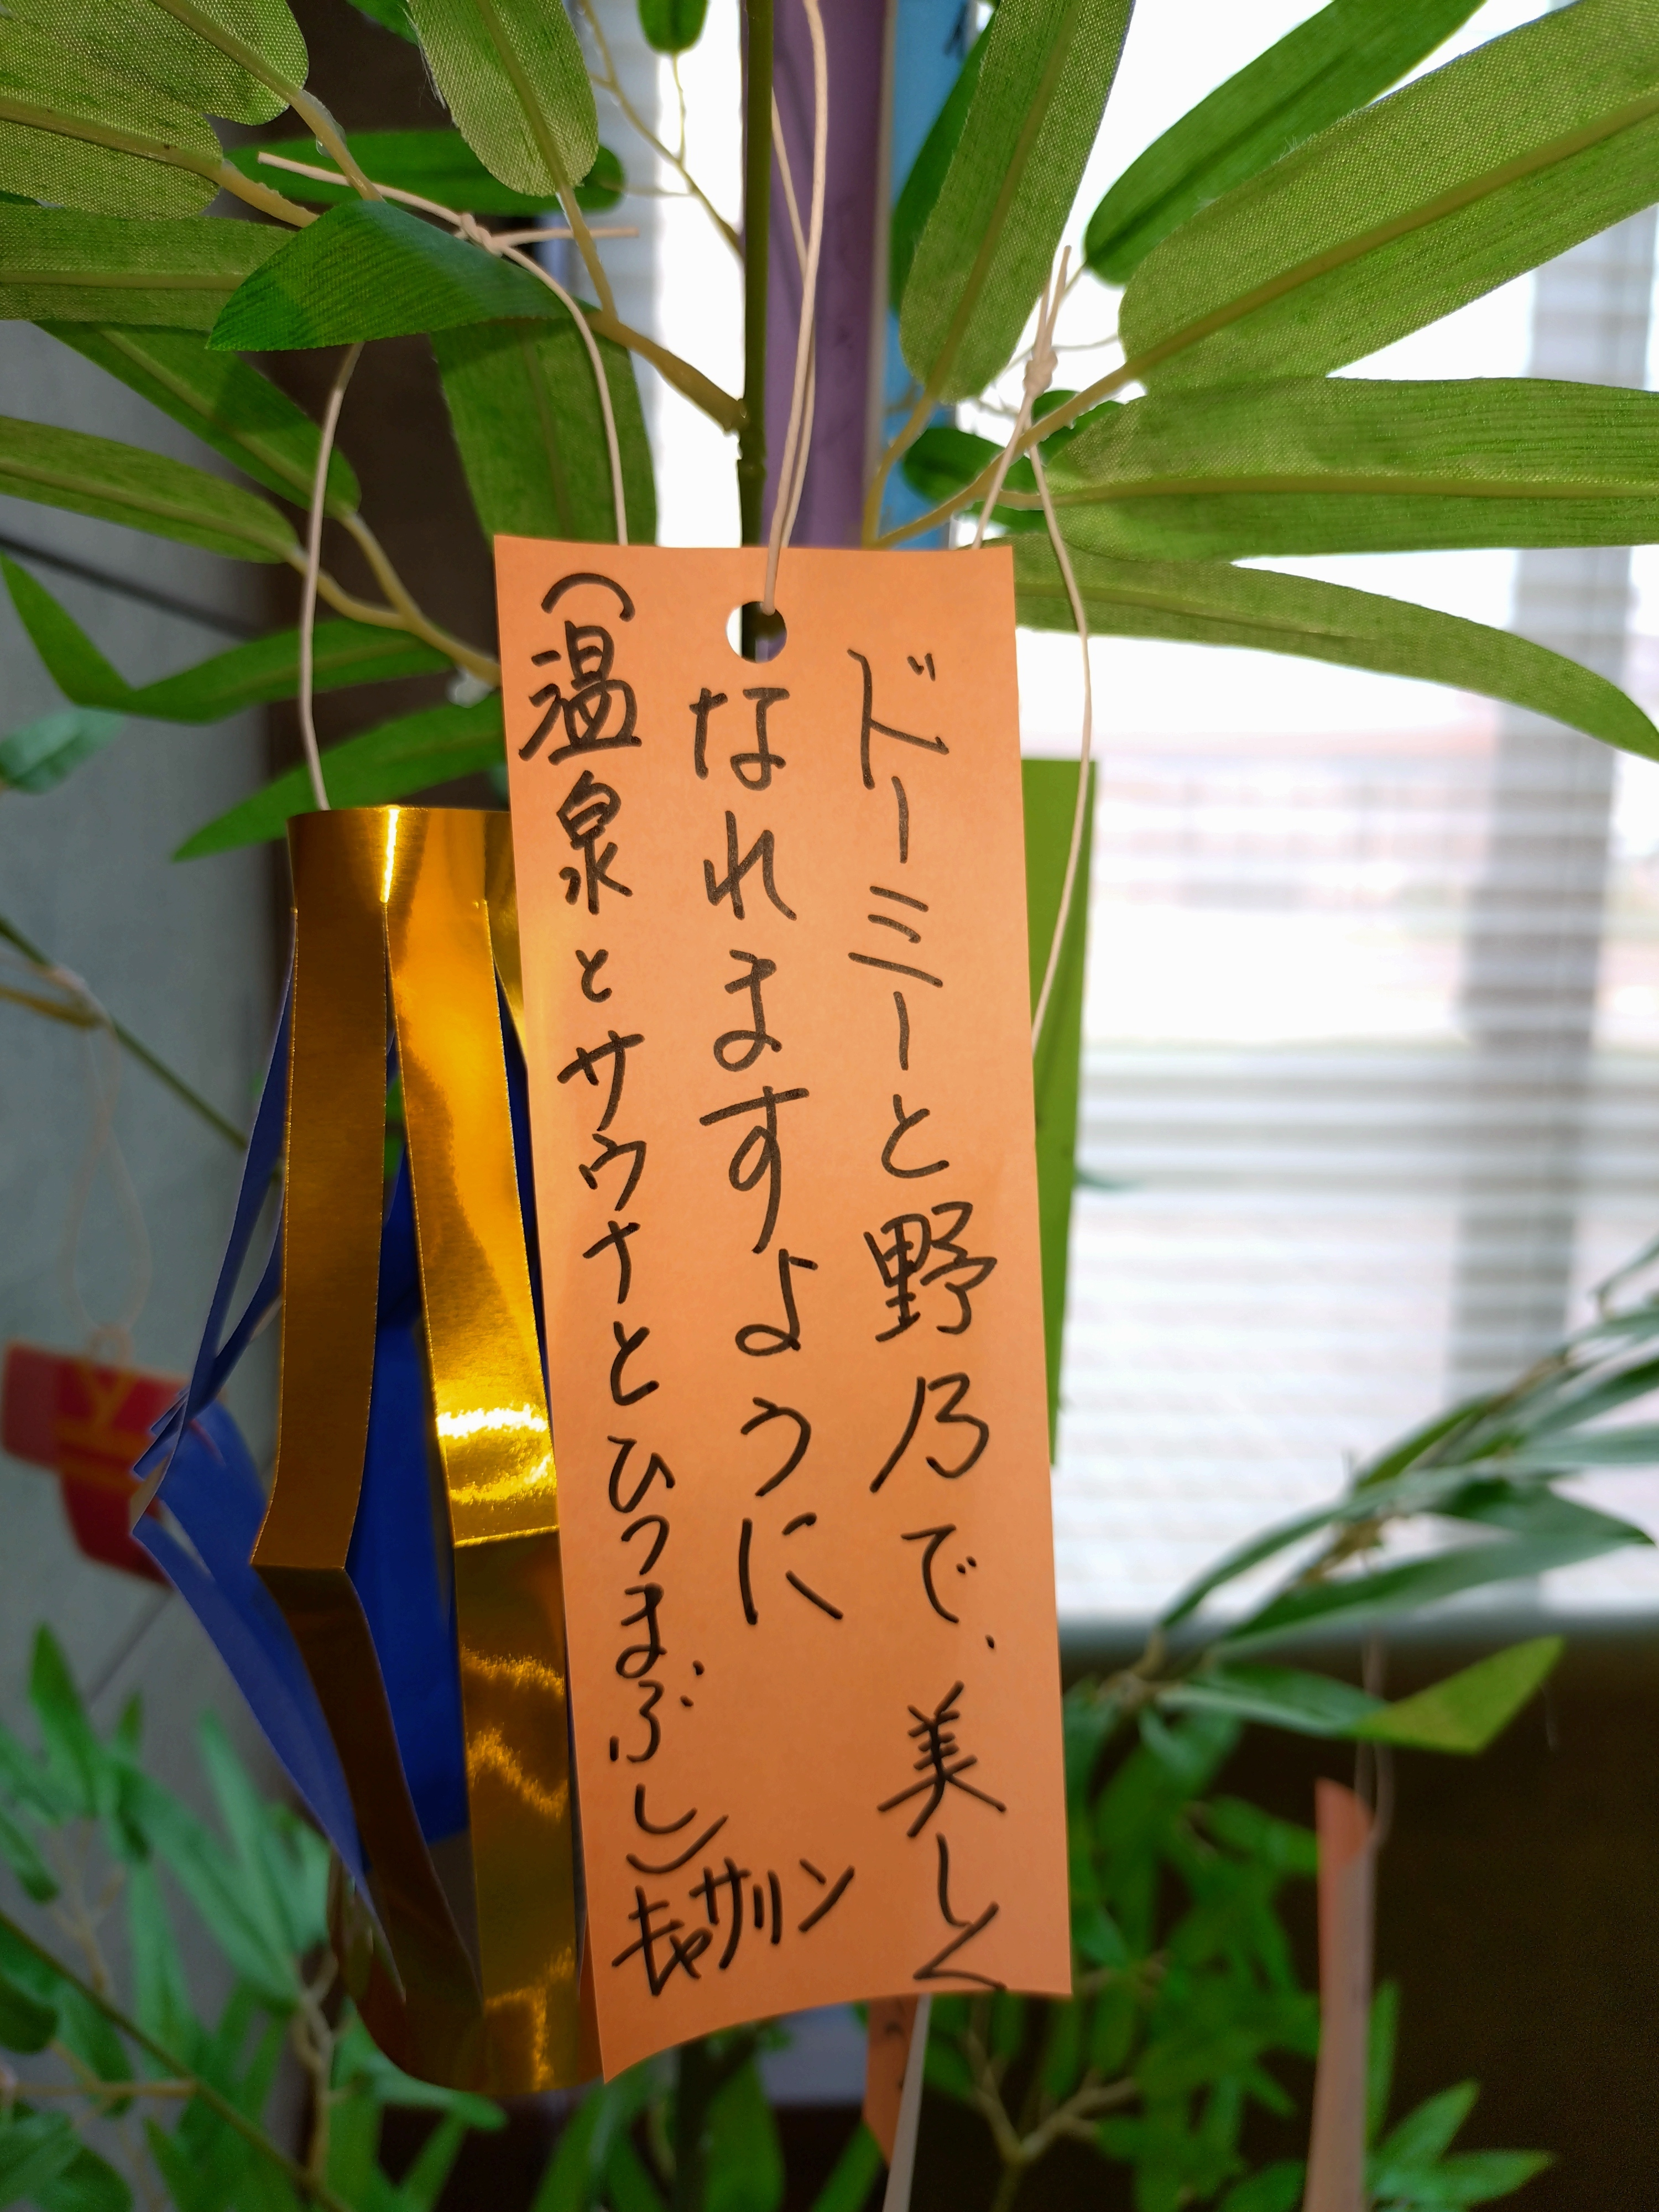 ドーミーと野乃で、美しく
なれますように
(温泉とサウナとひつまぶし)
キャサリン